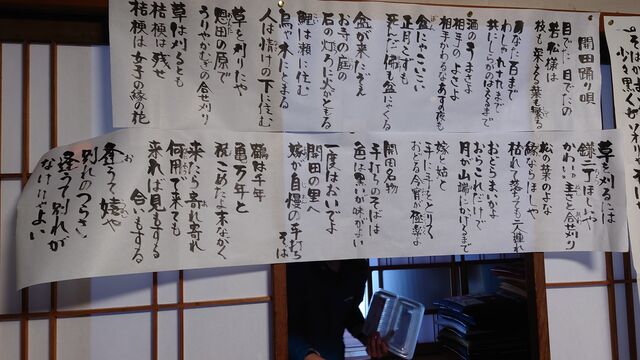 開田踊り唄
目でた目でたの
若松様は
枝も栄える葉も繁る
わしゃ九十九まで
共にしらがのはえるまで
酒のうまさよ
相手のよさよ
相手かわるなあすの夜も
盆にゃこいこい
正月こずも
死んだ佛も盆にゃくる
盆が来たぞえ
お寺の庭の
石の灯ろに火がともる
鯉は瀬に住む
鳥ゃ木にとまる
人は情けの下に住む
草を刈りにや
恩田の原で
うりやかむぎの合せ刈り
草は刈るとも
桔梗は残せ
桔梗は女子の縁の花
草を刈るには
鎌二丁ほしや
かわいい主さと合せ刈り
縁ならほしや
松の葉のよな
枯れて落ちても二人連れ
おどらまいかよ
おらこれだけで
月が山端にかくるまで
嫁と姑と
手に手をとりて
おどる今宵の極楽よ
開田名物
手打ちのそばは
色は黒いが味がよい
一度はおいでよ
開田の里へ
嫁が自慢の手打ちそば
鶴は千年
亀は万年と
祝こめたよ末ながく
来たら寄れ寄れ
何用で来ても
来れば見もする
合いもする
逢うて嬉や
別れのつらさ
逢うて別れが
なけりゃよい